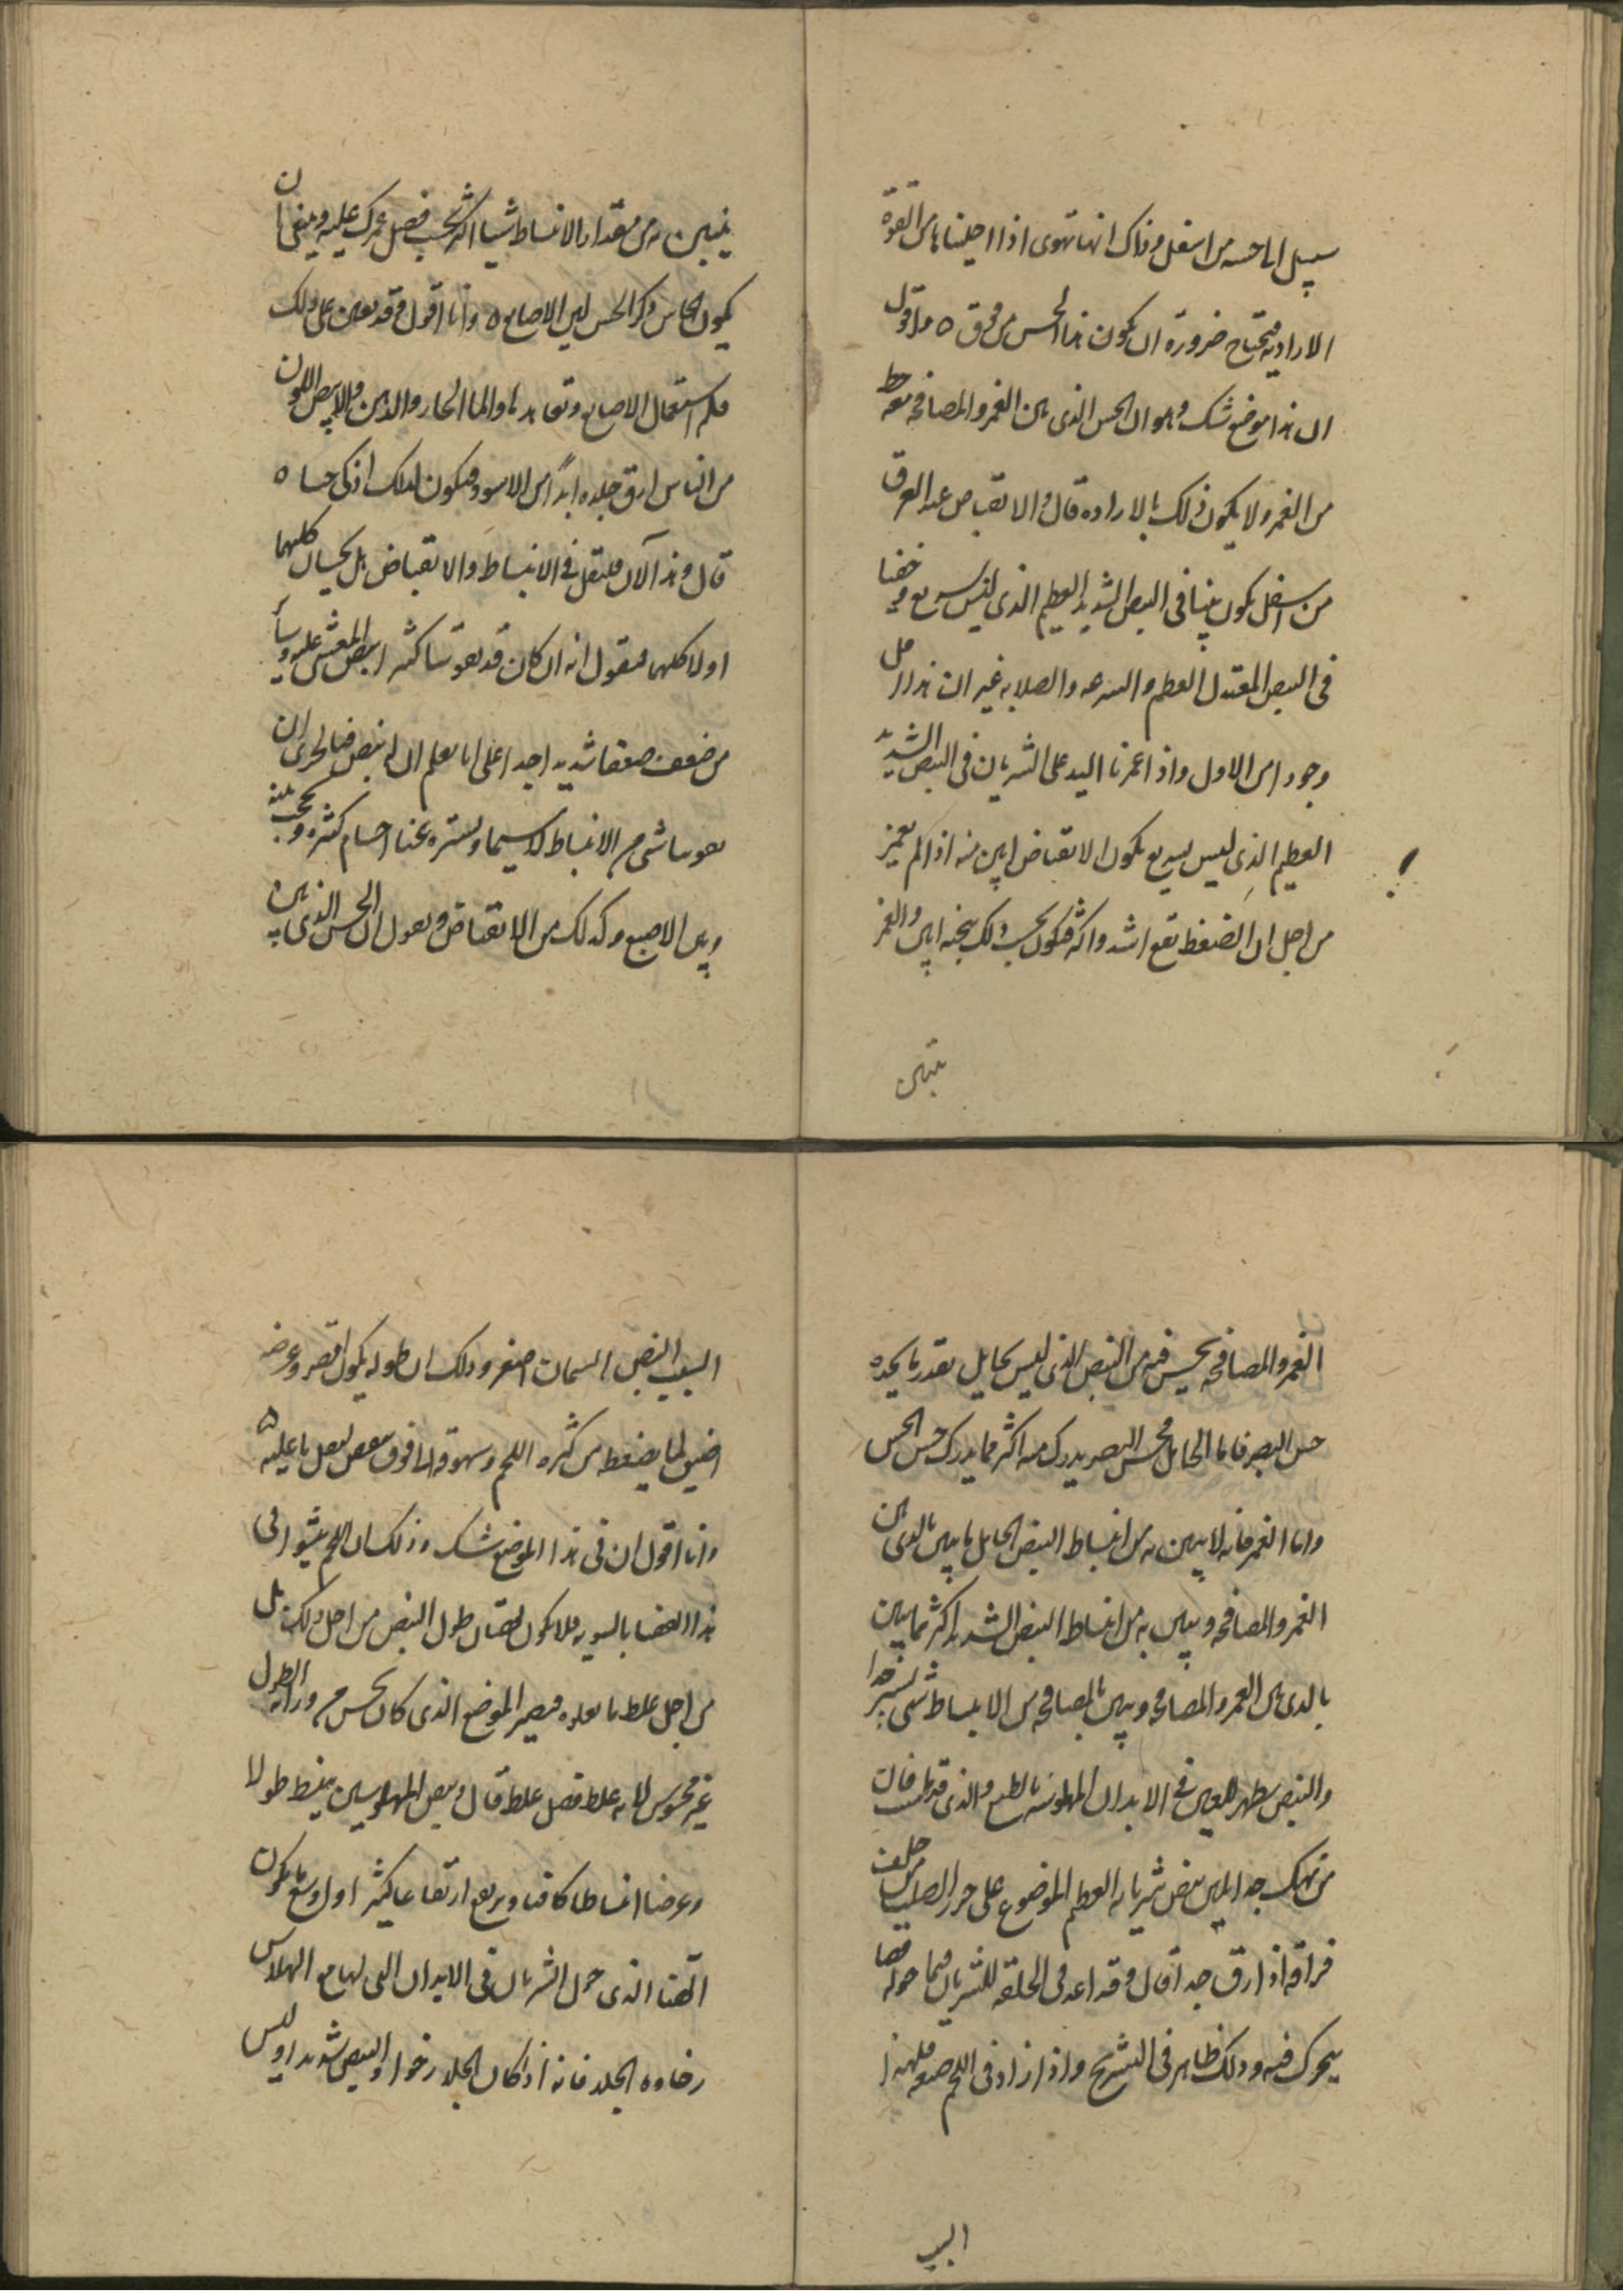 سبيل الى حسه من اسفل وذلك انها تهوى اذا اخلينا من القوة
الارادية فتحتاج ضرورة ان يكون هذا الحس من فوق ه واقول
ان هذا موضع شك وهو ان الحس الذى بين الغمز والمصافحة
من الغمز ولا يكون ذلك بالارادة قال والانقباض عند العرق
من اسفل يكون بينا فى النبض الشديد العظيم الذى ليس بسريع وخفيا
فى النبض المعتدل العظم والسرعه والصلابه غير ان هذا اقل
وجودا من الاول واذا غمزنا اليد على الشريان فى النبض الشديد
العظيم الذى ليس بسريع يكون الانقباض ابين منه اذا لم نغمز
من اجل ان الضغط يقع اشد واكثر فيكون بحسب ذلك ابين والغمز
تبين
يتبين به من مقدار الانبساط شيا اكثر بحسب فضل غمزك عليه وينبغى ان
يكون الجاس ذكى الحس لين الاصابع ه وانا اقول وقد يعين على ذلك
استعمال الاصابع وتعاهدها والما الحار والدهن والابيض اللون
من الناس ارق جلده ابدا من الاسود فيكون لذلك اذكى حسا ه
قال وهذا الان فلنقل فى الانبساط والانقباض هل يحسان كلاهما
او لا كلاهما فنقول انه ان كان قد يفوتنا كثيرا نبض المغشى عليه وسائر
من ضعف ضعفا شديدا جدا على انا نعلم ان له نبض فبالحرى ان
يفوتنا شى من الانبساط لا سيما ويستره عنا اجسام كثيرة وتحجب بينه
وبين الاصبع وكذلك من الانقباض ونقول ان الحس الذى بين
الغمز والمصافحه يحس فيه من النبض الذى ليس بحايل بقدر ما يجده
حس البصر فاما الحايل فحس البصر يدرك منه اكثر مما يدرك حس الجس
واما الغمز فانه لا يبين به من انبساط النبض الحايل ما يبين بالذى بين
الغمز والمصافحه ويبين به من انبساط النبض الشديد اكثر مما يبين
بالذى بين الغمز والمصافحه ويبين بالمصافحه من الانبساط شى يسير جدا
والنبض يظهر للعين فى الابدان المهلوسة بالطبع والذى قد فان
من نهك جدا يبين نبض شريانه العظيم الموضوع على خرز الصلب من خلف
مراقه اذا رق جدا قال وقد اعد فى الخلقه للشريان فيما حوله فضا
يتحرك فيه وذلك ظاهر فى التشريح واذا زاد فى اللحم ضيقه فلهذا
السبب
السبب النبض السمان اصغر وذلك ان طوله يكون اقصر وعرضه
اضيق لما يضغطه من كثره اللحم وسهوقه الى فوق ينقص لثقل ما عليه ه
وانا اقول ان فى هذا الموضع شك وذلك ان اللحم يحشو الى
هذا الفضا بالسويه فلا يكون نقصان طول النبض من اجل ذلك بل
من اجل غلظ ما يعلوه فيصير الموضع الذى كان يحس من ورائه الطول
غير محسوس لانه غلظ فضل غلظ قال ونبض المهلوسين ينبسط طولا
وعرضا انبساطا كافيا ويرتفع ارتفاعا كثيرا اول وسع ما يكون
الفضا الذى حول الشريان فى الابدان التى لها مع الهلاس
رخاوه الجلد فانه اذا كان الجلد رخوا والنبض شديدا وليس